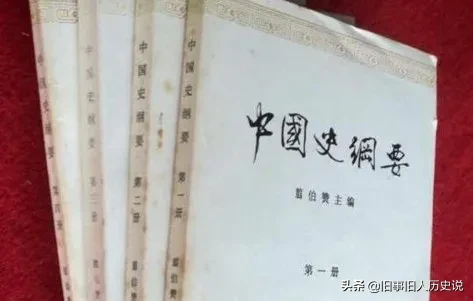 中国史纲要 第四册
中国史纲要 第三册 翦伯
中国史纲要 第二册 翦伯
中国史纲要 第一册 翦伯
中國史綱要
翦伯赞主编
第一册
头条 @旧事旧人历史说